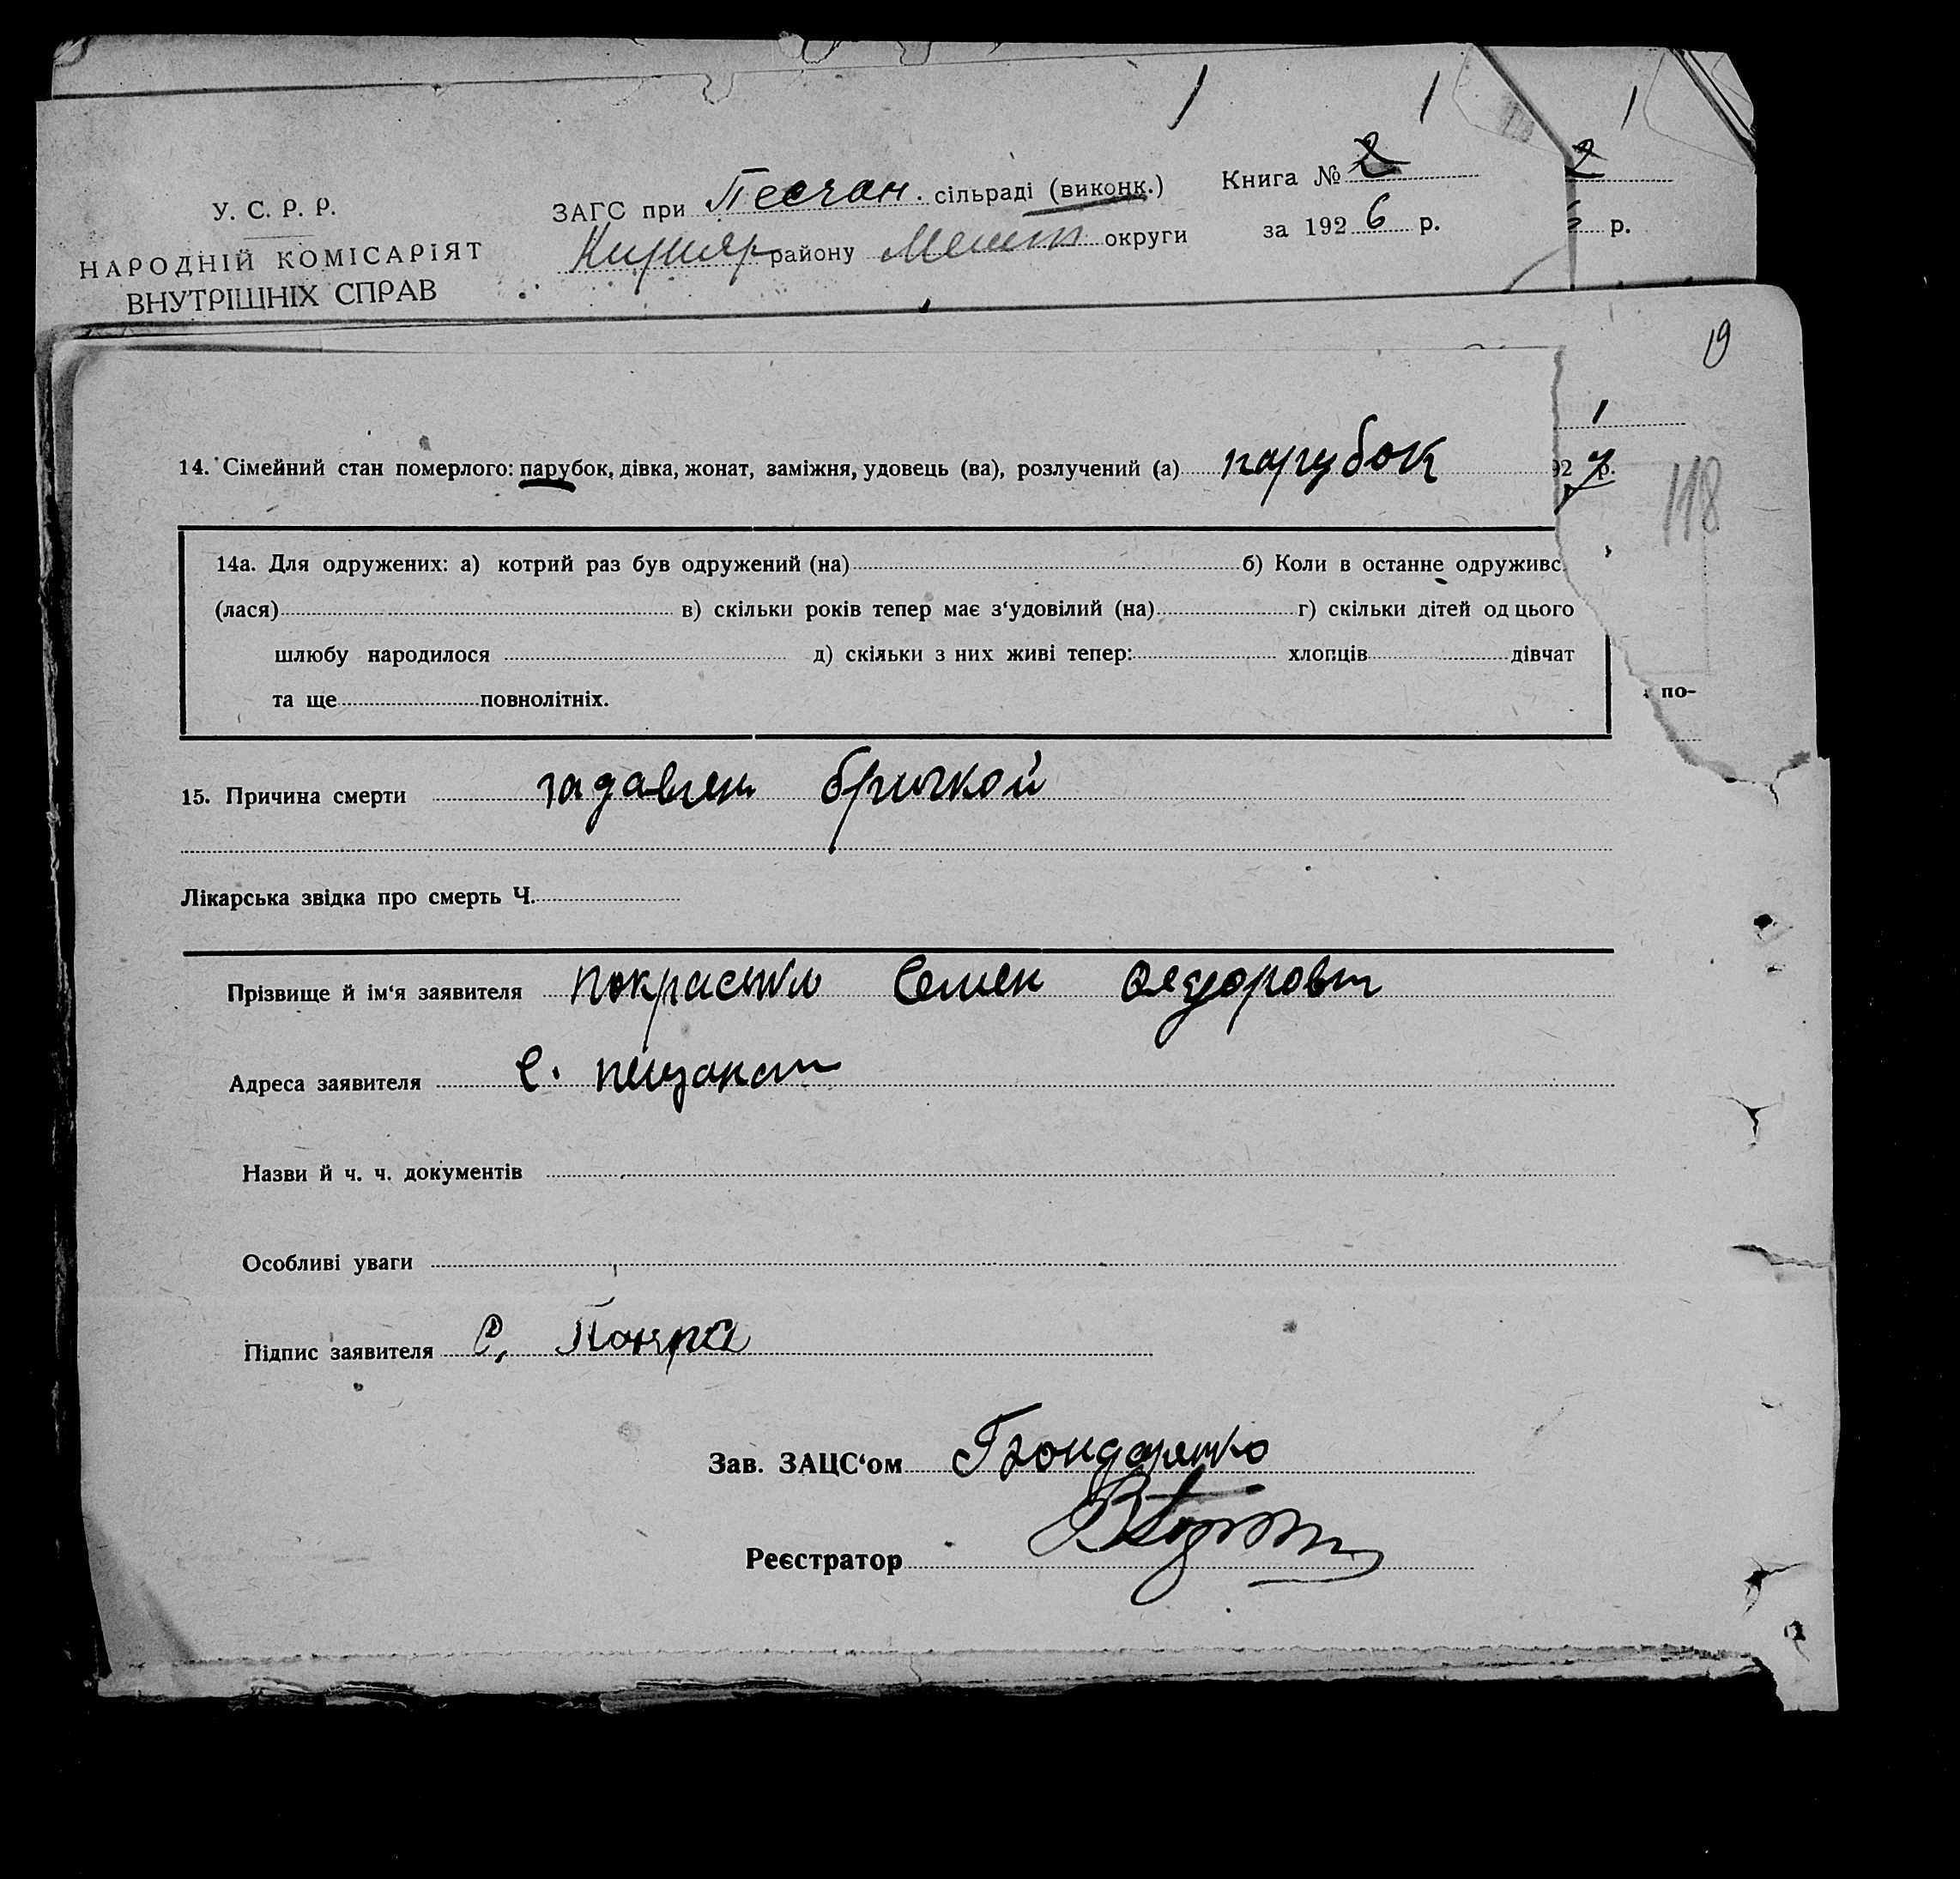 1 1 1
У. С. Р. Р.
НАРОДНІЙ КОМІСАРІЯТ
ВНУТРІШНІХ СПРАВ
ЗАГС при Песчан. сільраді (виконк.) Книга № 2 2
району Мелит округи за 1926 р. р.
19
1
14. Сімейний стан померлого: парубок, дівка, жонат, заміжня, удовець (ва), розлучений (а) парубок 92 7 р.
118
14а. Для одружених: а) котрий раз був одружений (на) б) Коли в останне одруживс
(лася) в) скільки років тепер має з‘удовілий (на) г) скільки дітей од цього
шлюбу народилося д) скільки з них живі тепер: хлопців дівчат
та ще повнолітніх.
по-
15. Причина смерти задавлен бричкой
Лікарська звідка про смерть Ч.
Прізвище й ім‘я заявителя Семен Федорович
Адреса заявителя С.
Назви й ч. ч. документів
Особливі уваги
Підпис заявителя С.
Зав. ЗАЦС‘ом Бондаренко
Реєстратор